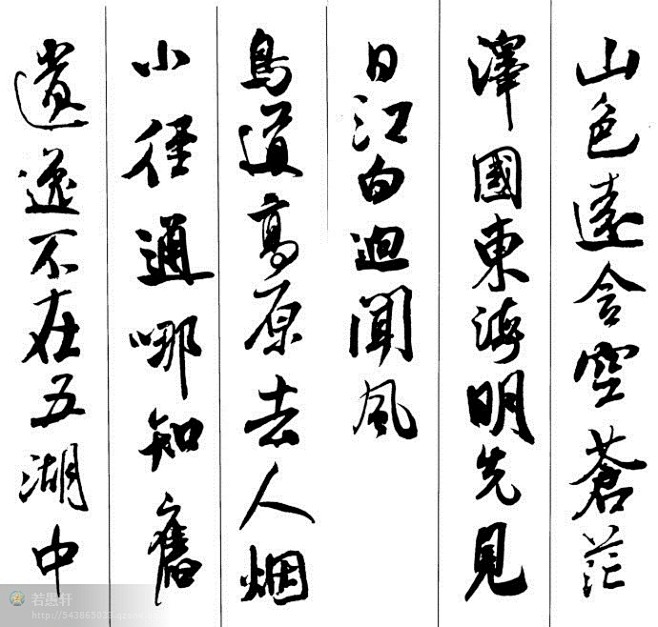 山色遠含空蒼茫
澤國東海明先見
日江白迥聞風
鳥道高原去人烟
小徑通哪知舊
遺逸不在五湖中
若愚轩